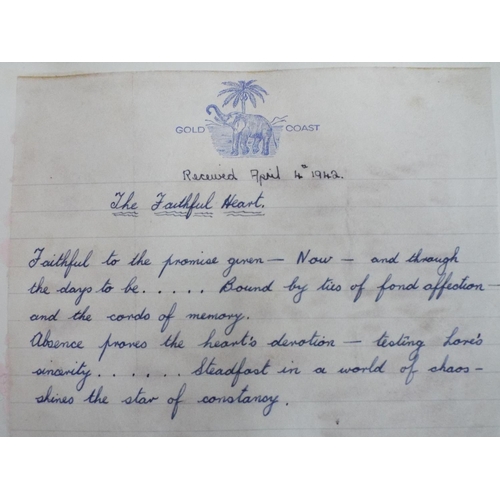 GOLD COAST
Received April 4th 1942.
The Faithful Heart.
Faithful to the promise given - Now - and through
the days to be..... Bound by ties of fond affection -
and the cords of memory.
Absence proves the heart's devotion - testing Love's
sincerity...... Steadfast in a world of chaos -
shines the star of constancy.